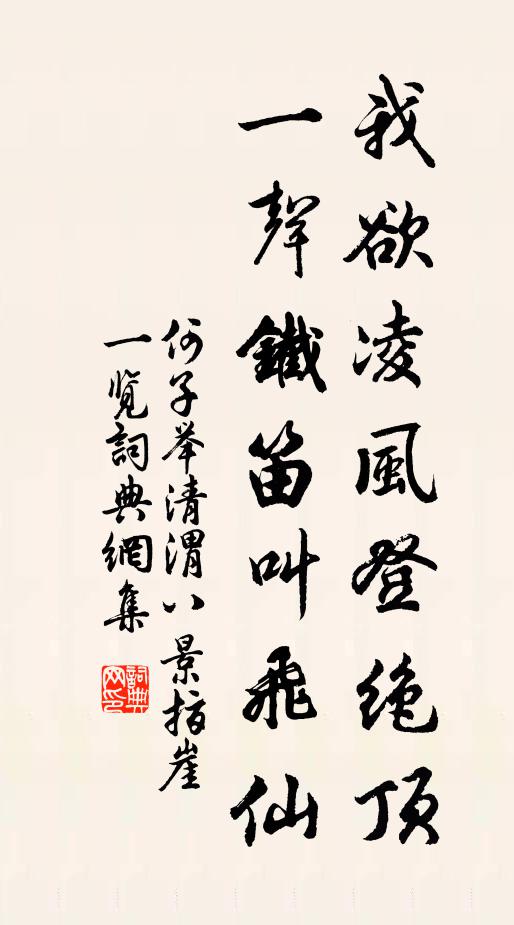 我欲凌風登绝顶
一聲鐵笛叫飛仙
何子举清渭八景指崖
一览詞典網集
詞典
网印